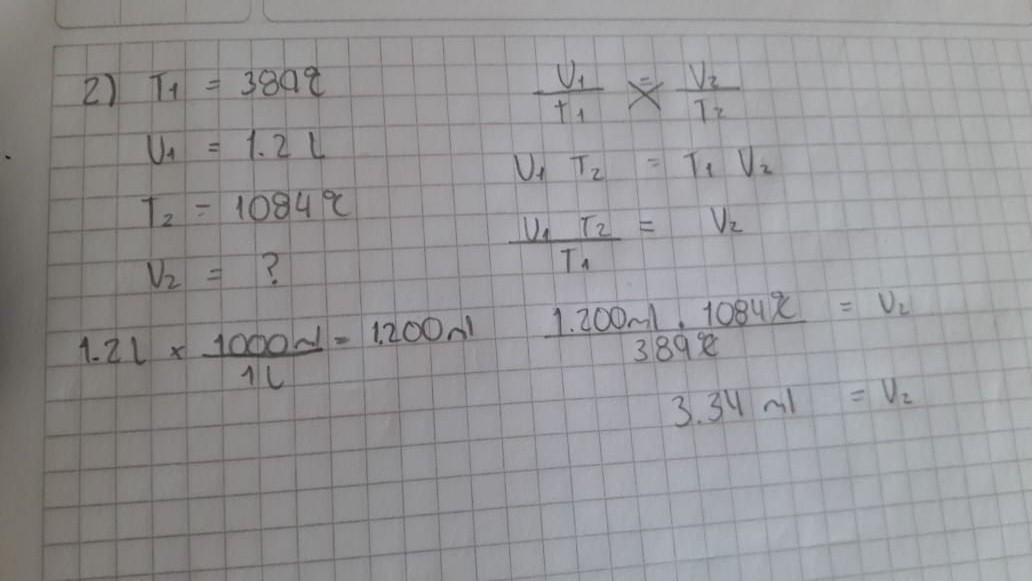 2) T₁ = 389°C
V₁ = 1.2 L
T₂ = 1084°C
V₂ = ?
1.2L x 1000ml/1L = 1.200ml
V₁/T₁ = V₂/T₂
V₁ T₂ = T₁ V₂
V₁ T₂/T₁ = V₂
1.200ml . 1084°C/389°C = V₂
3.34 ml = V₂